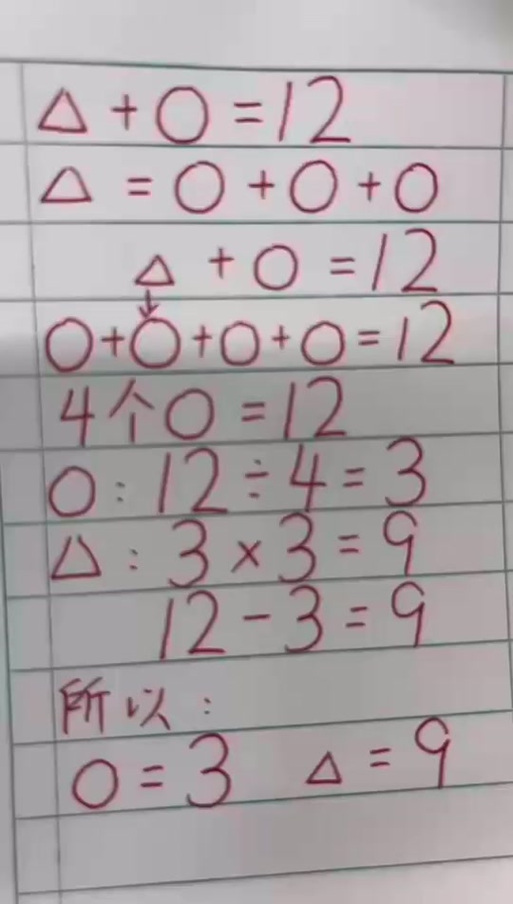 △ + ○ = 12
△ = ○ + ○ + ○
△ + ○ = 12
↓
○ + ○ + ○ + ○ = 12
4个○ = 12
○ : 12 ÷ 4 = 3
△ : 3 × 3 = 9
12 - 3 = 9
所以 :
○ = 3 △ = 9